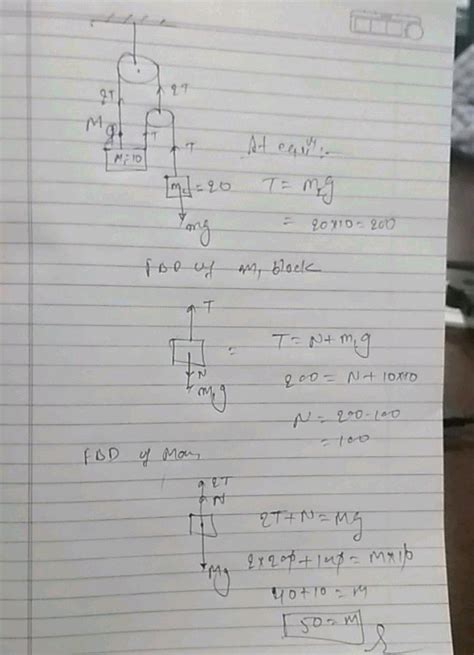 2T
2T
Mg
T
T
M₁=10
At equi^m:-
m₂ = 20
T = m₂g
= 20×10 = 200
mg
FBD of m₁ block
T
T = N + m₁g
N
m₁g
200 = N + 10×10
N = 200-100
= 100
FBD of Man
2T
N
2T + N = Mg
Mg
2×200 + 100 = M×10
40+10 = M
50 = M